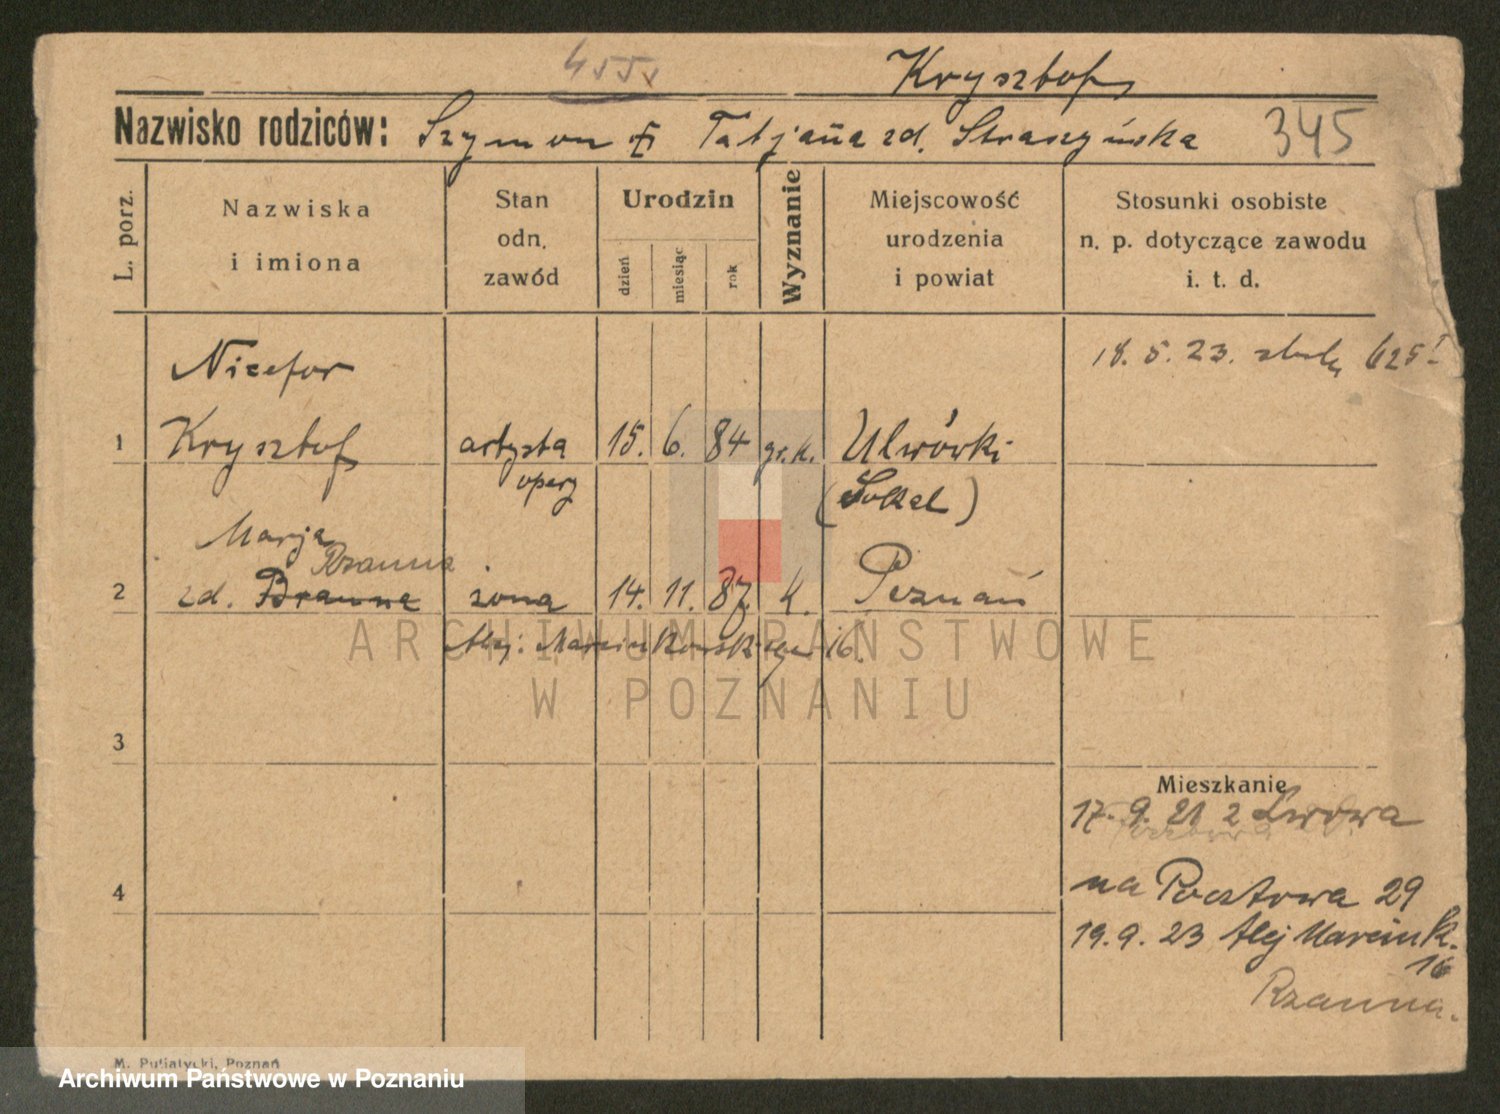 455.
Krysztof
Nazwisko rodziców: Szymon Tatjana zd. Straszyńska 345
L. porz.
Nazwiska
i imiona
Stan
odn.
zawód
Urodzin
dzień
miesiąc
rok
Wyznanie
Miejscowość
urodzenia
i powiat
Stosunki osobiste
n. p. dotyczące zawodu
i. t. d.
18. 5. 23. 625
Nicefor
1 Krysztof artysta 15. 6. 84 gr. k. Ulwówki
opery (Sokal)
Marja
Rzanna
2 zd. Branne żona 14. 11. 87. k. Poznań
Alej: Marcinkowskiego 16.
ARCHIWUM PAŃSTWOWE
W POZNANIU
3
Mieszkanie
17. 9. 21 z Lwowa
4
na Pocztowa 29
19. 9. 23 Alej Marcink.
16
Rzanna.
M. Putiatycki, Poznań
Archiwum Państwowe w Poznaniu